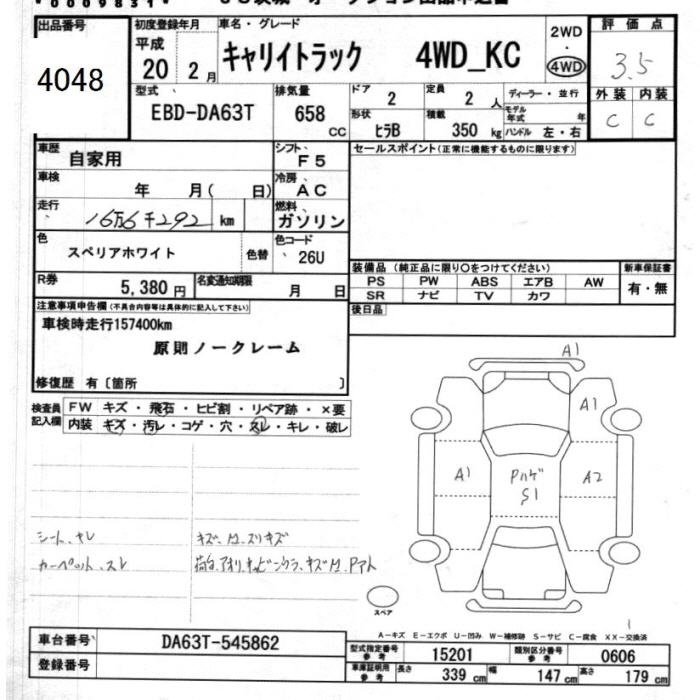 *0009831*
出品番号
4048
初度登録年月
平成
20 2月
車名・グレード
キャリイトラック 4WD_KC
2WD
・
4WD
評価点
3.5
外装 内装
C C
型式
EBD-DA63T
排気量
658
CC
ドア
2
定員
2 人
形状
ヒラB
積載
350 kg
ディーラー・並行
モデル年式 年
ハンドル 左・右
車歴
自家用
シフト
F5
セールスポイント(正常に機能するものに限ります)
車検
年 月( 日)
冷房
AC
走行
16万6千292 km
燃料
ガソリン
色
スペリアホワイト
色替
色コード
26U
R券
5,380円
名変通知期限
月 日
装備品(純正品に限り〇をつけてください)
PS PW ABS エアB AW
SR ナビ TV カワ
新車保証書
有・無
後日品
注意事項申告欄(不具合内容等は具体的に記入して下さい)
車検時走行157400km
原則ノークレーム
修復歴 有〔箇所 〕
検査員記入欄
FW キズ・飛石・ヒビ割・リペア跡・×要
内装 キズ・汚レ・コゲ・穴・スレ・キレ・破レ
シート、キレ
カーペット、スレ
A1
A1
A1
Pハゲ
S1
A2
スペア
A-キズ E-エクボ U-凹み W-補修跡 S-サビ C-腐食 XX-交換済
車台番号
DA63T-545862
登録番号
型式指定番号
参考
15201
類別区分番号
参考
0606
車庫証明用
参考
長さ 339 cm
幅 147 cm
高さ 179 cm